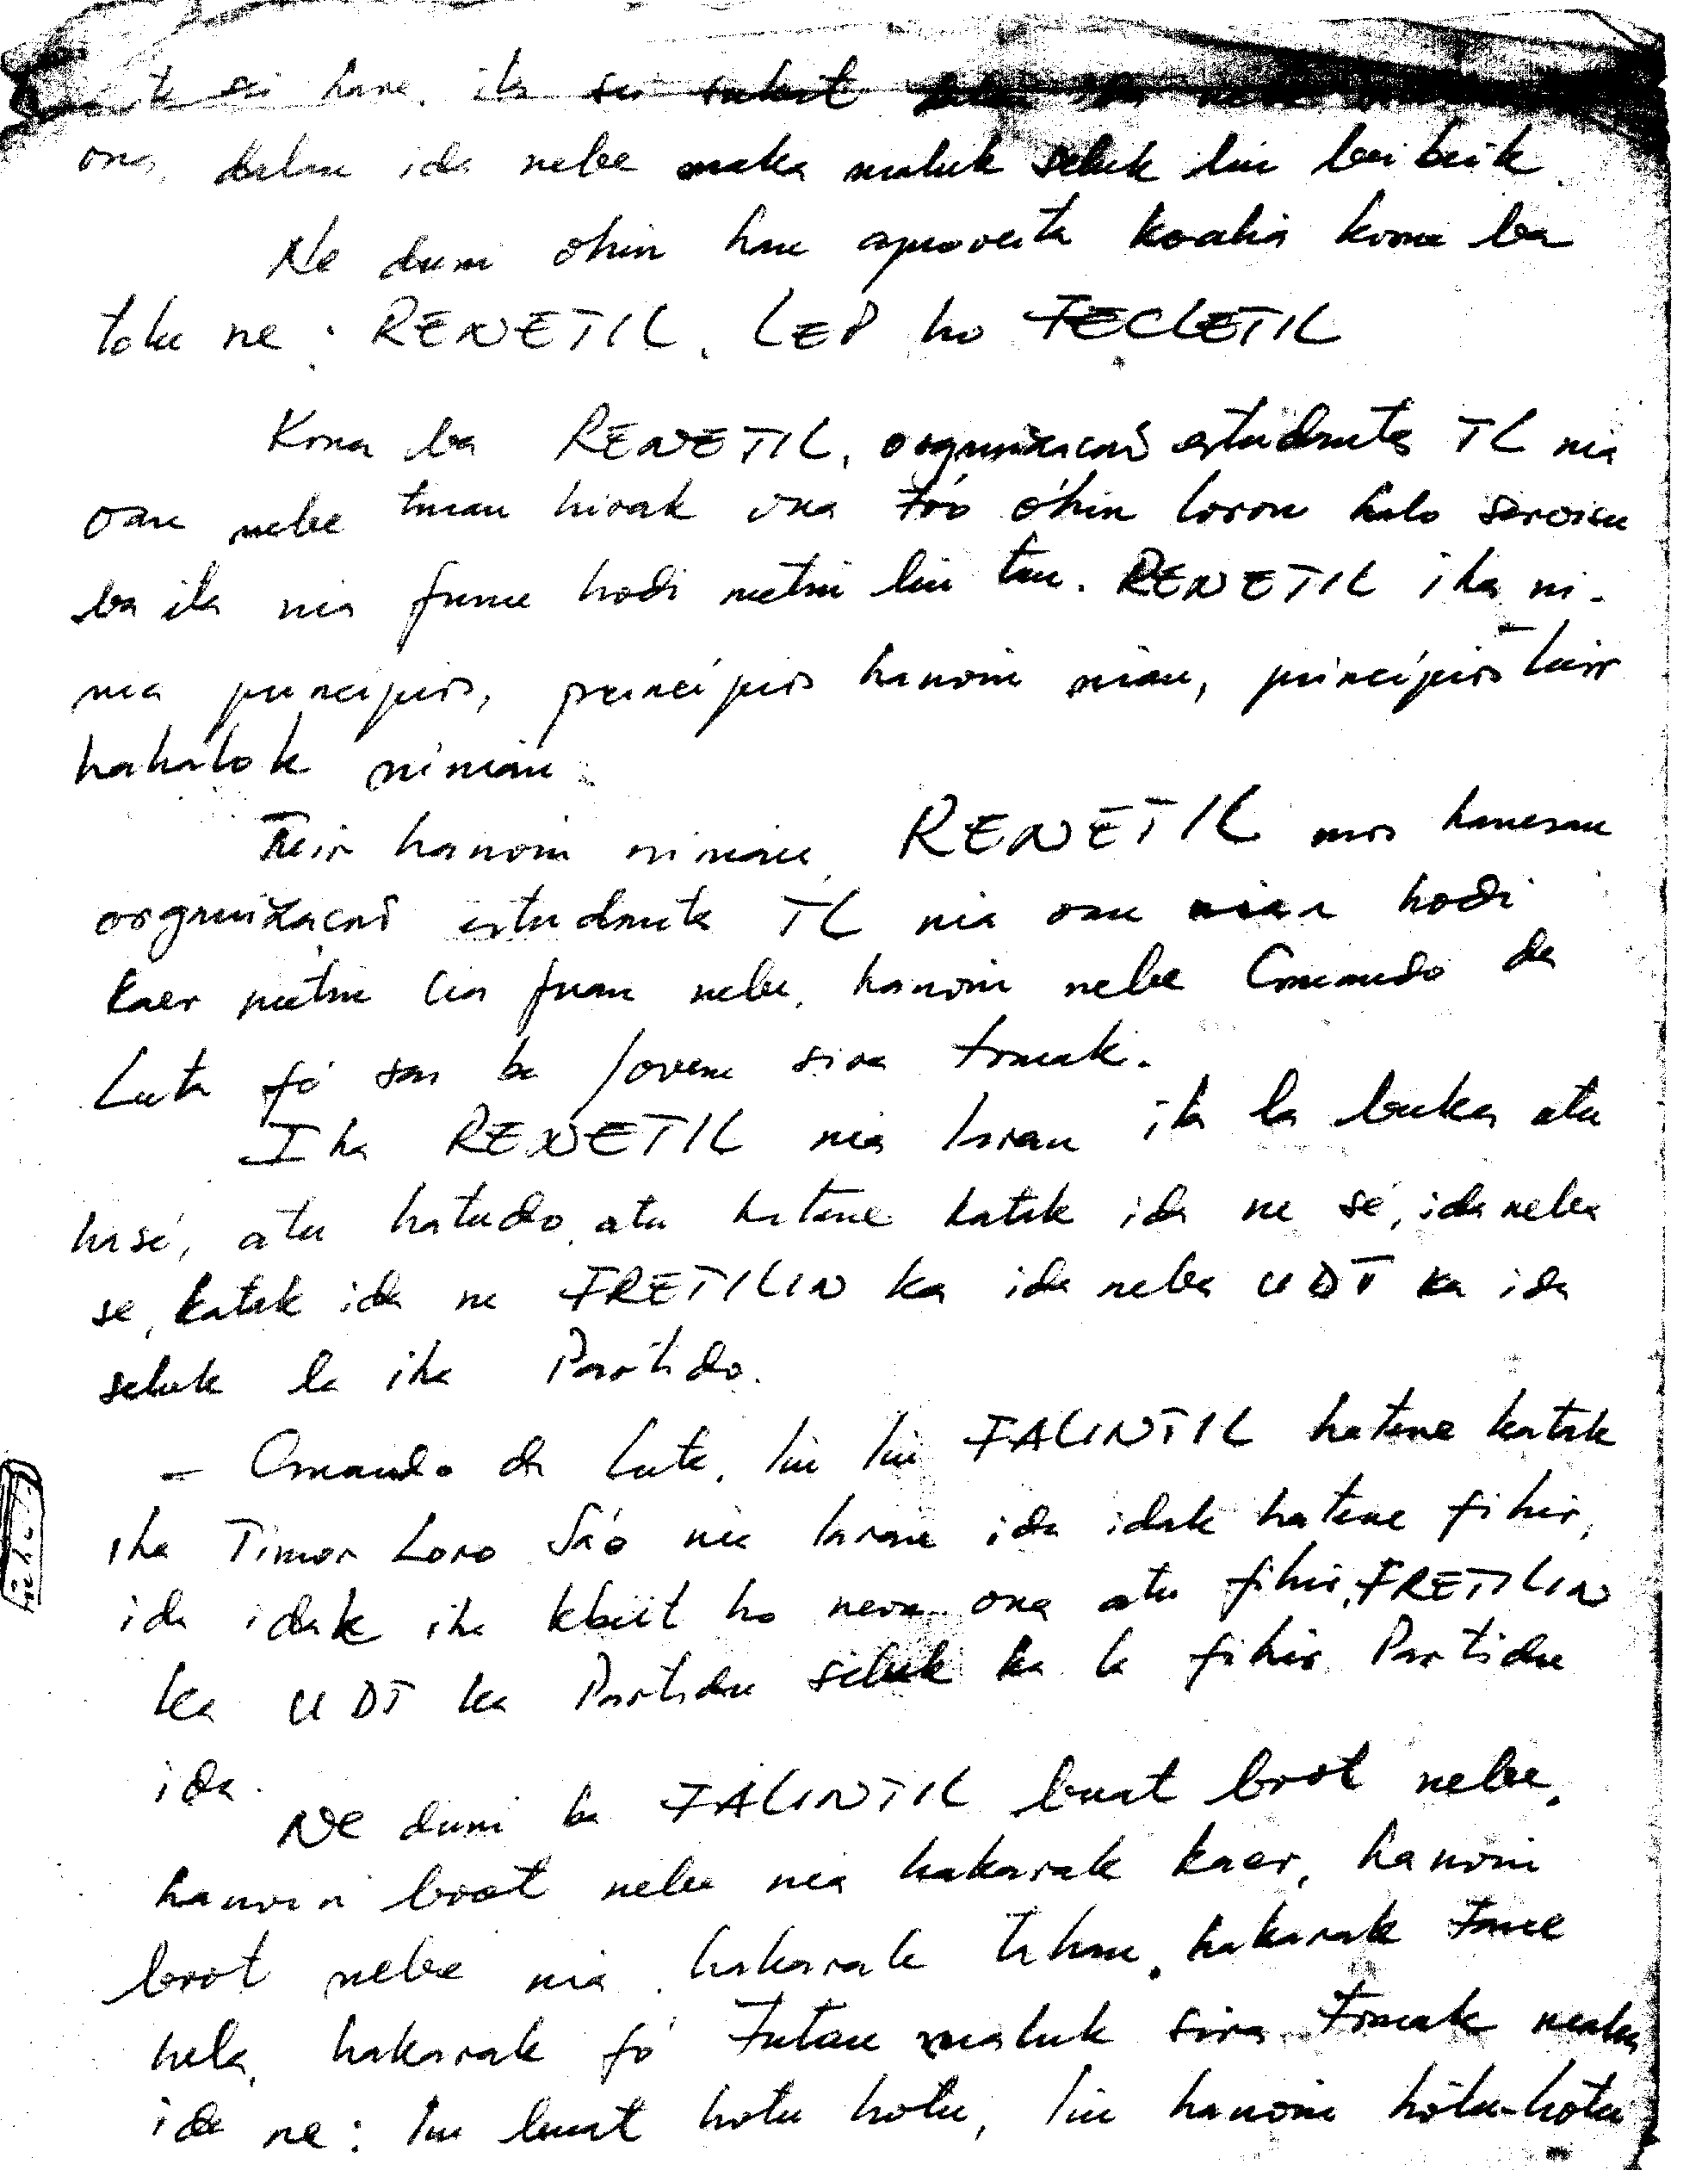 sei hare, ita sei sukat
ona, dalan ida nebe maka maluk seluk liu bei beik
Ne duni ohin hau aproveita koalia kona ba
tolu ne: RENETIL, LEP ho FECLETIL
Kona ba RENETIL, organização estudantes TL nia
oan nebe tinan hirak ona tó'o ohin loron halo servisu
ba ita nia funu hodi metin liu tan. RENETIL iha ni-
nia principio, principio hanoin nian, principio tuir
hahalok ninian.
Tuir hanoin ninian, RENETIL mos hanesan
organização estudante TL nia oan nian hodi
kaer metin lia fuan nebe, hanoin nebe Comando da
Luta fó sai ba Jovem sira tomak.
Iha RENETIL nia laran ita la buka atu
husé, atu hatudo, atu hatene katak ida ne sé, ida neba
se, katak ida ne FRETILIN ka ida neba UDT ka ida
seluk la iha Partido.
- Comando da Luta, liu liu FALINTIL hatene katak
iha Timor Loro Sa'e nia laran ida idak hatene fihir,
ida idak iha kbiit ho neon ona atu fihir, FRETILIN
ka UDT ka Partidu seluk ka la fihir Partidu
ida.
Ne duni ba FALINTIL buat boot nebe,
hanoin boot nebe nia hakarak kaer, hanoin
boot nebe nia hakarak tahan, hakarak tane
hela, hakarak fó tutan maluk sira tomak maka
ida ne: liu buat hotu hotu, liu hanoin hotu-hotu